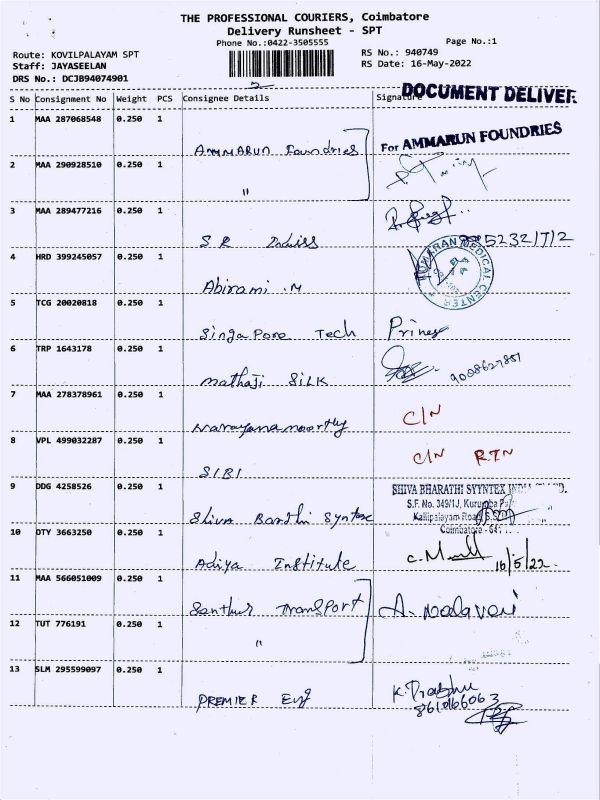 THE PROFESSIONAL COURIERS, Coimbatore
Delivery Runsheet - SPT
Phone No.:0422-3505555
Page No.:1
Route: KOVILPALAYAM SPT
RS No.: 940749
Staff: JAYASEELAN
RS Date: 16-May-2022
DRS No.: DCJB94074901
S No Consignment No Weight PCS Consignee Details Signature
DOCUMENT DELIVER
1 MAA 287068548 0.250 1
AMMARUN Foundries
For AMMARUN FOUNDRIES
2 MAA 290928510 0.250 1
"
3 MAA 289477216 0.250 1
S R
4 HRD 399245057 0.250 1
Abirami .M
MEDICAL CENTER
5 TCG 20020818 0.250 1
Singapore Tech
6 TRP 1643178 0.250 1
mathaji SILK
9008627851
7 MAA 278378961 0.250 1
Narayanamoorthy
C/N
8 VPL 499032287 0.250 1
SIBI
C/N RTN
9 DDG 4258526 0.250 1
Shiva Bardhi Syntex
SHIVA BHARATHI SYYNTEX
S.F. No. 349/1J,
Kallipalayam Road
Coimbatore - 641
10 DTY 3663250 0.250 1
Adiya Institute
16/5/22
11 MAA 566051009 0.250 1
Santhur Transport
12 TUT 776191 0.250 1
"
13 SLM 295599097 0.250 1
PREMIER Eng
K. Prabhu